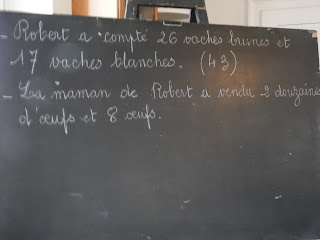 - Robert a compté 26 vaches brunes et
17 vaches blanches. (43)
- La maman de Robert a vendu 2 douzaines
d'œufs et 8 œufs.